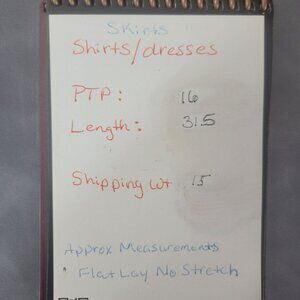 Skirts
Shirts/dresses
PTP: 16
Length: 31.5
Shipping wt 15
Approx Measurements
Flat Lay No Stretch